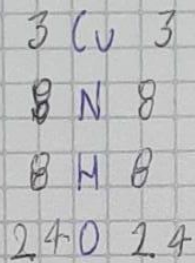 3 Cu 3
8 N 8
8 H 8
24 O 24